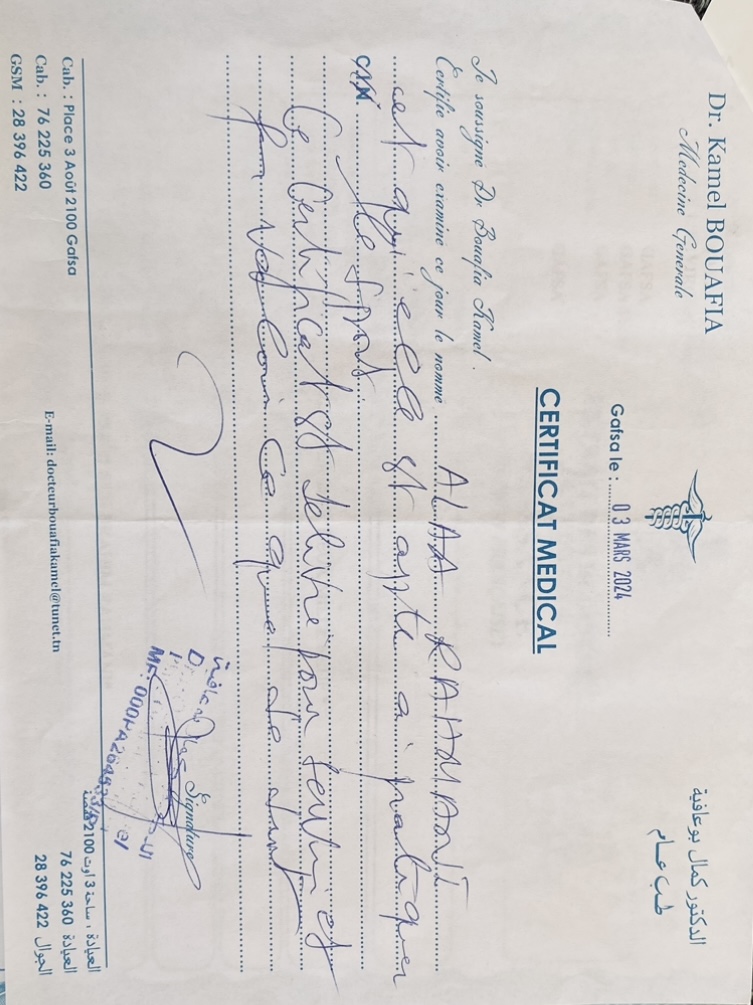 Dr. Kamel BOUAFIA
Medecine Generale
الدكتور كمال بوعافية
طب عام
Gafsa le : 03 MARS 2024
CERTIFICAT MEDICAL
Je soussigné Dr Bouafia Kamel .
Certifie avoir examine ce jour le nomme ALAA RAHMANI
et qu'elle est apte a pratiquer
le sport
Ce Certificat est délivré pour servir et
ce que de droit
Signature
Cab. : Place 3 Août 2100 Gafsa
Cab. : 76 225 360
GSM : 28 396 422
E-mail: docteurbouafiakamel@tunet.tn
العيادة : ساحة 3 أوت 2100 قفصة
العيادة 76 225 360
الجوال 28 396 422